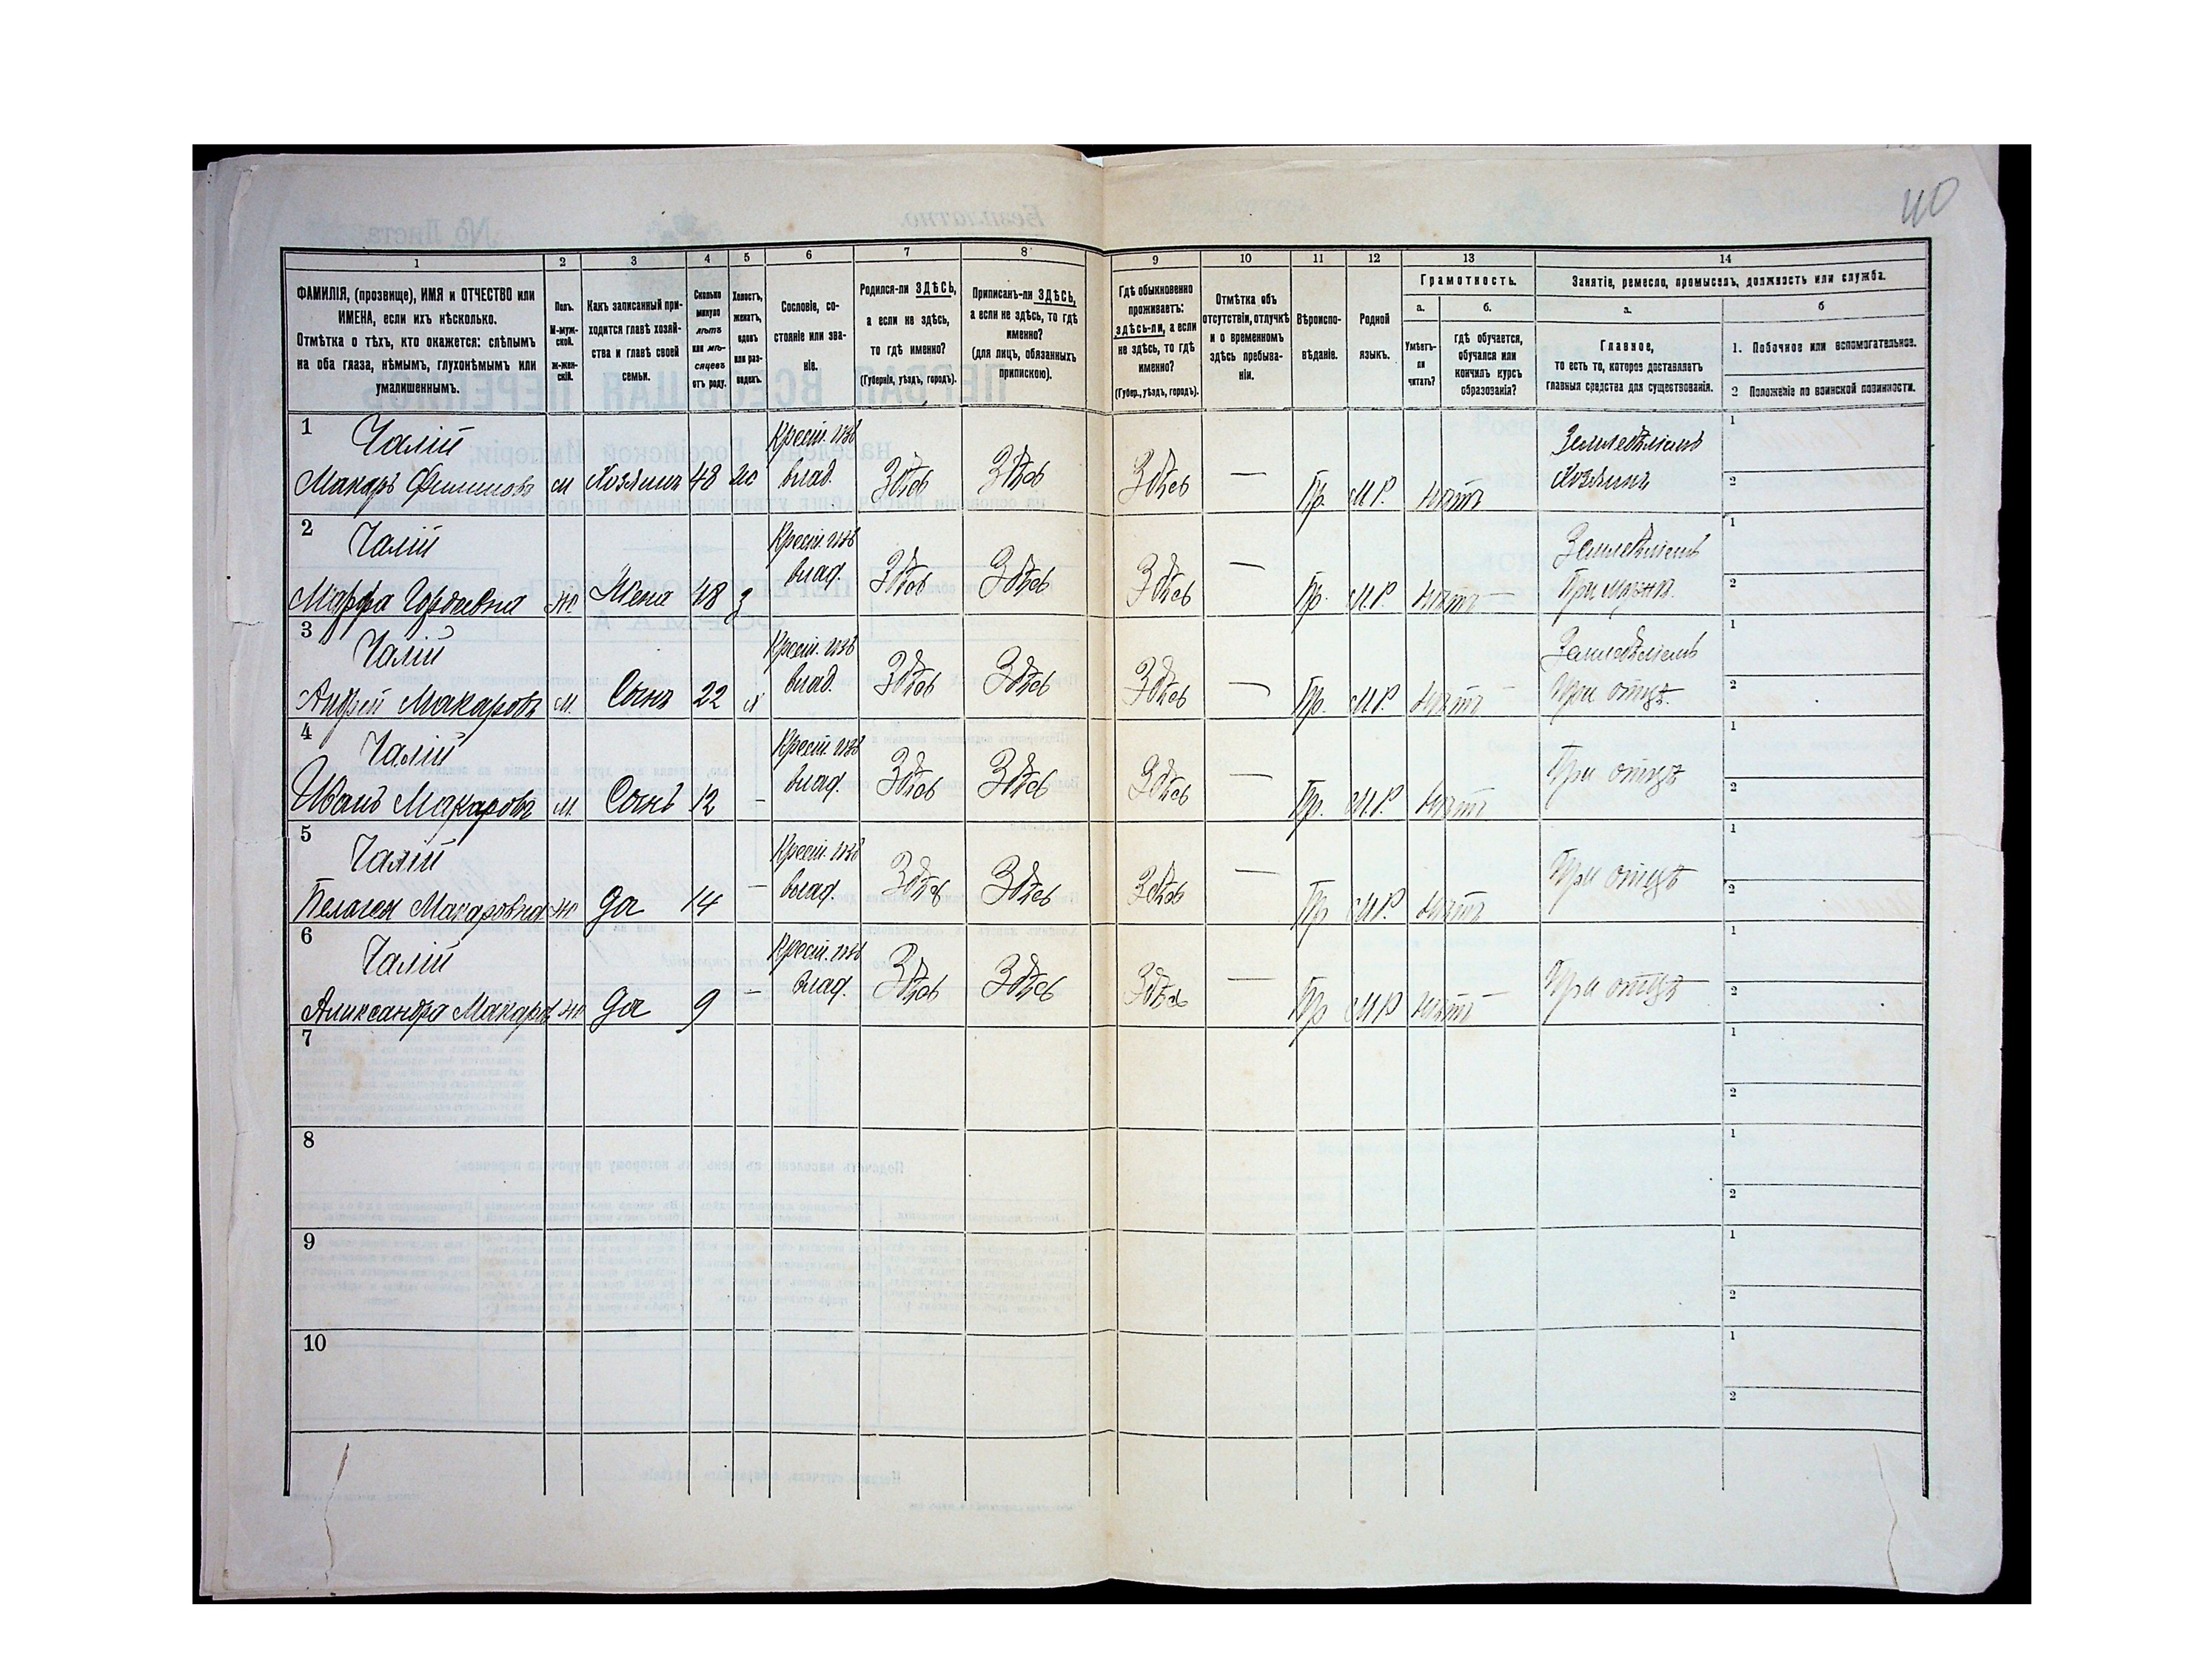 40
1 2 3 4 5 6 7 8 9 10 11 12 13 14
ФАМИЛІЯ, (прозвище), ИМЯ и ОТЧЕСТВО или
ИМЕНА, если ихъ нѣсколько.
Отмѣтка о тѣхъ, кто окажется: слѣпымъ
на оба глаза, нѣмымъ, глухонѣмымъ или
умалишеннымъ.
Полъ.
М-муж-
ской.
ж-жен-
скій.
Какъ записанный при-
ходится главѣ хозяй-
ства и главѣ своей
семьи.
Сколько
минуло
лѣтъ
или мѣ-
сяцевъ
отъ роду.
Холостъ,
женатъ,
вдовъ
или раз-
веденъ.
Сословіе, со-
стояніе или зва-
ніе.
Родился-ли ЗДѢСЬ,
а если не здѣсь,
то гдѣ именно?
(Губернія, уѣздъ, городъ).
Приписанъ-ли ЗДѢСЬ,
а если не здѣсь, то гдѣ
именно?
(для лицъ, обязанныхъ
припискою).
Гдѣ обыкновенно
проживаетъ:
здѣсь-ли, а если
не здѣсь, то гдѣ
именно?
(Губер., уѣздъ, городъ).
Отмѣтка объ
отсутствіи, отлучкѣ
и о временномъ
здѣсь пребыва-
ніи.
Вѣроиспо-
вѣданіе.
Родной
языкъ.
Грамотность.
а. б.
Умѣетъ-
ли
читать?
гдѣ обучается,
обучался или
кончилъ курсъ
образованія?
Занятіе, ремесло, промыселъ, должность или служба.
а. б
Главное,
то есть то, которое доставляетъ
главныя средства для существованія.
1. Побочное или вспомогательное.
2 Положеніе по воинской повинности.
1 Чалій Крест. изъ Земледѣліемъ 1
Макаръ Филиповъ м Хозяинъ 48 ж влад. Здѣсь Здѣсь Здѣсь — Пр. М.Р. нѣтъ Хозяинъ 2
2 Чалій Крест. изъ Земледѣліемъ 1
Марфа Гордѣевна ж Жена 48 з влад. Здѣсь Здѣсь Здѣсь — Пр. М.Р. нѣтъ — При мужѣ. 2
3 Чалій Крест. изъ Земледѣліемъ 1
Андрей Макаровъ м. Сынъ 22 х влад. Здѣсь Здѣсь Здѣсь — Пр. М.Р. нѣтъ — При отцѣ. 2
4 Чалій Крест. изъ 1
Иванъ Макаровъ м. Сынъ 12 — влад. Здѣсь Здѣсь Здѣсь — Пр. М.Р. нѣтъ При отцѣ 2
5 Чалій Крест. изъ 1
Пелагея Макаровна ж До 14 — влад. Здѣсь Здѣсь Здѣсь — Пр М.Р. нѣтъ При отцѣ 2
6 Чалій Крест. изъ 1
Александра Макаров ж До 9 — влад. Здѣсь Здѣсь Здѣсь — Пр М Р нѣтъ — При отцѣ 2
7 1
2
8 1
2
9 1
2
10 1
2